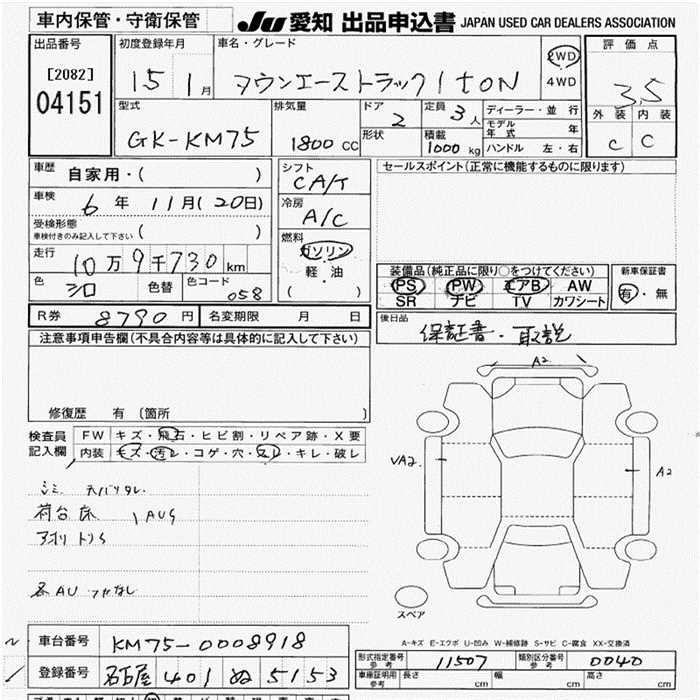 車内保管・守衛保管
JU 愛知 出品申込書 JAPAN USED CAR DEALERS ASSOCIATION
出品番号
[2082]
04151
初度登録年月
15 1月
車名・グレード
タウンエーストラック1toN
2WD
4WD
評価点
3.5
外装 内装
C C
型式
GK-KM75
排気量
1800 CC
ドア
2
形状
定員
3人
積載
1000 kg
ディーラー・並行
モデル年式 年
ハンドル 左・右
車歴
自家用・( )
車検
6年 11月(20日)
受検形態
車検付きのみ記入して下さい ( )
走行
10万9千730km
色
シロ
色替
色コード
058
シフト
CA/T
冷房
A/C
燃料
ガソリン
軽・油
( )
セールスポイント(正常に機能するものに限ります)
装備品(純正品に限り○をつけてください)
PS PW エアB AW
SR ナビ TV カワシート
新車保証書
有・無
R券 8790円
名変期限 月 日
後日品
保証書・取説
注意事項申告欄(不具合内容等は具体的に記入して下さい)
修復歴 有 (箇所 )
検査員
記入欄
FW キズ・飛石・ヒビ割・リペア跡・X要
内装 キズ・汚レ・コゲ・穴・スレ・キレ・破レ
シミ 天バリタレ
荷台床 1AUS
アオリトリS
各AU
A2
VA2
A2
スペア
A-キズ E-エクボ U-凹み W-補修跡 S-サビ C-腐食 XX-交換済
車台番号 KM75-0008918
登録番号 名古屋 401 ぬ 5153
形式指定番号
参考
11507
類別区分番号
参考
0040
車庫証明用
参考
長さ cm 幅 cm 高さ cm